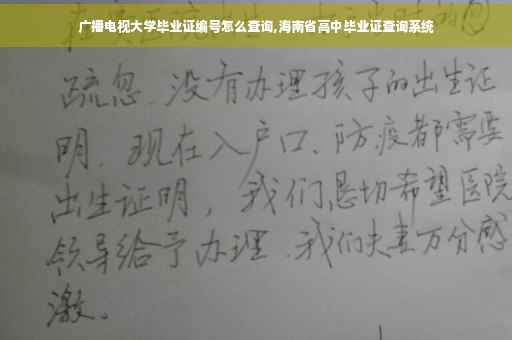 广播电视大学毕业证编号怎么查询,海南省高中毕业证查询系统
疏忽、没有办理孩子的出生证
明、现在入户口、防疫都需要
出生证明，我们恳切希望医院
领导给予办理、我们夫妻万分感
激。